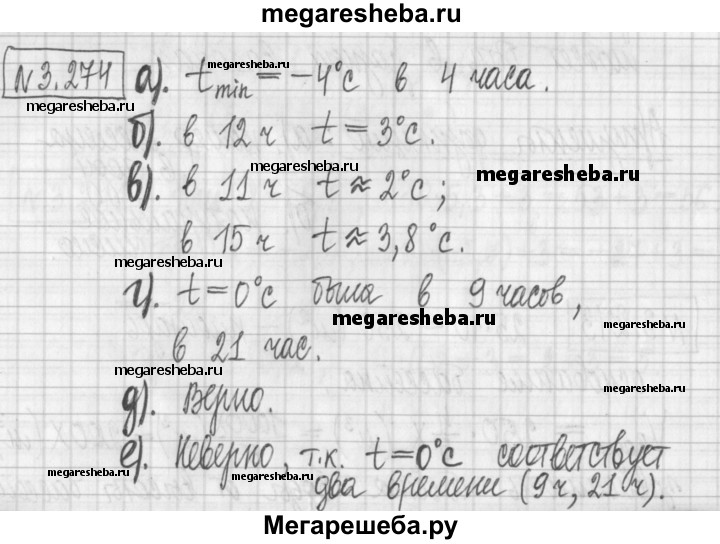 megaresheba.ru
№ 3.274 а). tmin = -4°с в 4 часа.
megaresheba.ru
megaresheba.ru
б). в 12 ч t = 3°с.
megaresheba.ru
в). в 11 ч t ≈ 2°с;
megaresheba.ru
в 15 ч t ≈ 3,8°с.
megaresheba.ru
г). t=0°с была в 9 часов,
megaresheba.ru
megaresheba.ru
в 21 час.
megaresheba.ru
д). Верно.
е). Неверно, т.к. t=0°с соответствует
megaresheba.ru
megaresheba.ru
два времени (9ч, 21ч).
Мегарешеба.ру